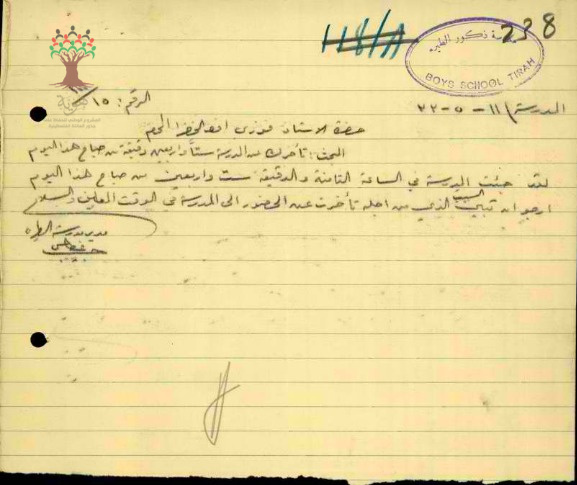 238
مدرسة ذكور الطيره
BOYS SCHOOL TIRAH
الرقم: ١٥/
المدرسة ١١-٥-٢٢
حضرة الاستاذ فوزي افندي الخضرا المحترم
البحث: تأخرك عن المدرسة ستا واربعين دقيقة من صباح هذا اليوم
لقد جئت المدرسة في الساعة الثامنة والدقيقة ست واربعين من صباح هذا اليوم
ارجو ان تبين السبب الذي من اجله تأخرت عن الحضور الى المدرسة في الوقت المعين والسلام
مدير مدرسة الطيره